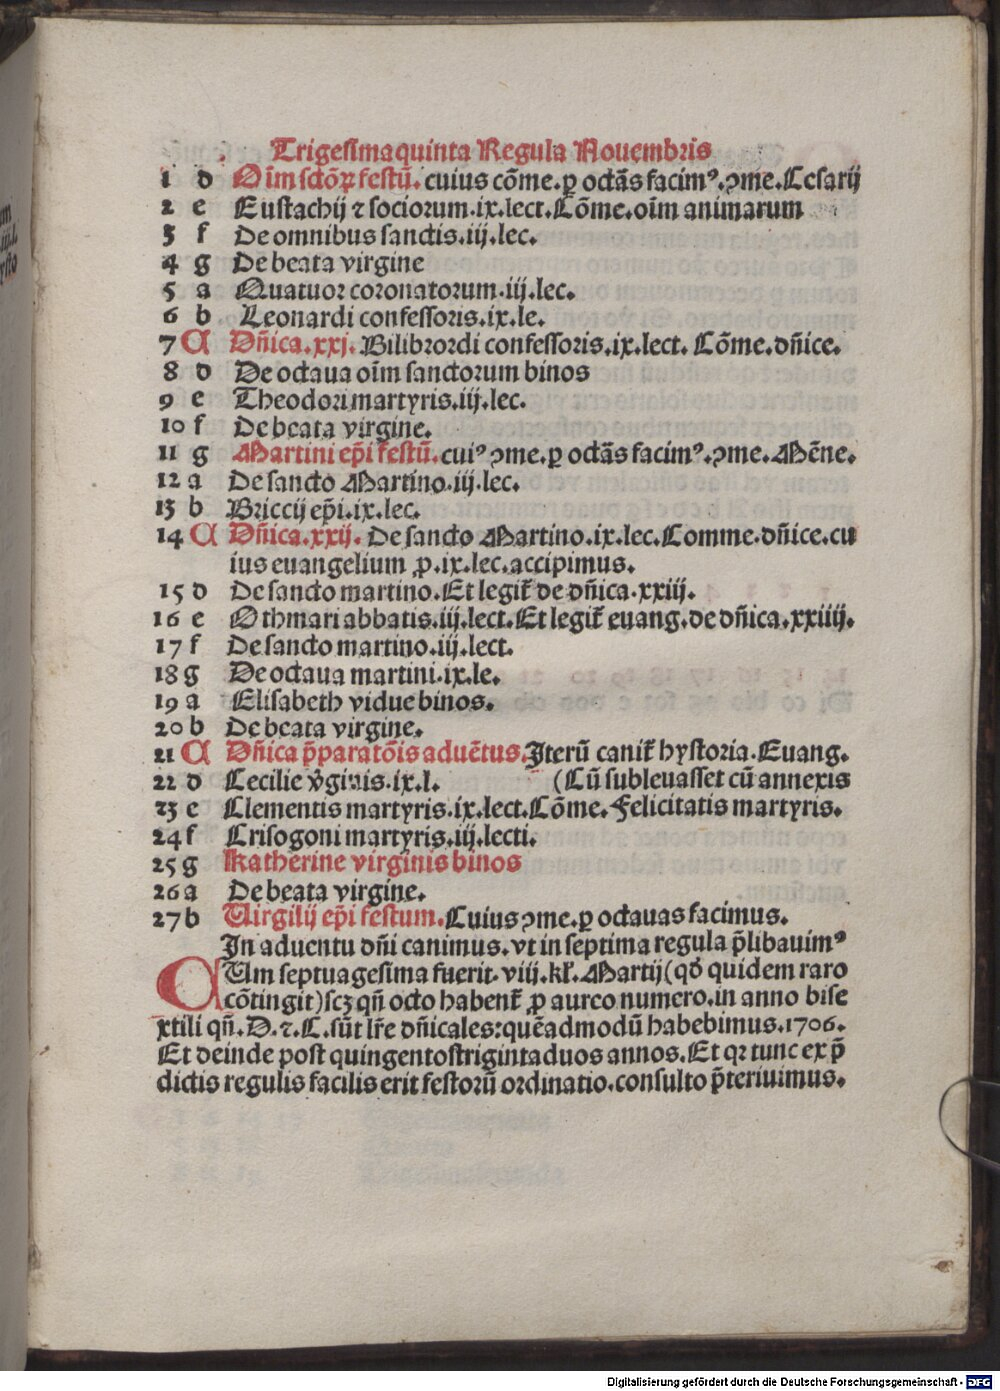 Trigesimaquinta Regula Nouembris
1 d Oı̄m sctōꝝ festū. cuius cōme. ꝑ octās facimꝰ. ꝯme. Cesarij
2 e Eustachij ⁊ sociorum. ix. lect. Cōme. oı̄m animarum
3 f De omnibus sanctis. iij. lec.
4 g De beata virgine
5 a Quatuor coronatorum. iij. lec.
6 b Leonardi confessoris. ix. le.
7 A Dn̄ica. xxj. Bilibrordi confessoris. ix. lect. Cōme. dn̄ice.
8 d De octaua oı̄m sanctorum binos
9 e Theodori martyris. iij. lec.
10 f De beata virgine.
11 g Martini ep̄i festū. cuiꝰ ꝯme. ꝑ octās facimꝰ. ꝯme. Mēne.
12 a De sancto Martino. iij. lec.
13 b Briccij ep̄i. ix. lec.
14 A Dn̄ica. xxij. De sancto Martino. ix. lec. Comme. dn̄ice. cu
ius euangelium ꝓ. ix. lec. accipimus.
15 d De sancto martino. Et legit̄ de dn̄ica. xxiij.
16 e Othmari abbatis. iij. lect. Et legit̄ euang. de dn̄ica. xxiiij.
17 f De sancto martino. iij. lect.
18 g De octaua martini. ix. le.
19 a Elisabeth vidue binos.
20 b De beata virgine.
21 A Dn̄ica p̄paratōis aduētus. Iterū canit̄ hystoria. Euang.
22 d Cecilie v̄ginis. ix. l. (Cū subleuasset cū annexis
23 e Clementis martyris. ix. lect. Cōme. Felicitatis martyris.
24 f Crisogoni martyris. iij. lecti.
25 g Katherine virginis binos
26 a De beata virgine.
27 b Uirgilij ep̄i festum. Cuius ꝯme. ꝑ octauas facimus.
In aduentu dn̄i canimus. vt in septima regula p̄libauimꝰ
CUm septuagesima fuerit. viij. kl̄. Martij (qd̄ quidem raro
cōtingit) scꝫ qn̄ octo habent̄ ꝓ aureo numero. in anno bise
xtili qn̄. D. ⁊. C. sūt lr̄e dn̄icales: quēadmodū habebimus. 1706.
Et deinde post quingentostrigintaduos annos. Et qꝛ tunc ex p̄
dictis regulis facilis erit festorū ordinatio. consulto p̄teriuimus.
Digitalisierung gefördert durch die Deutsche Forschungsgemeinschaft - DFG